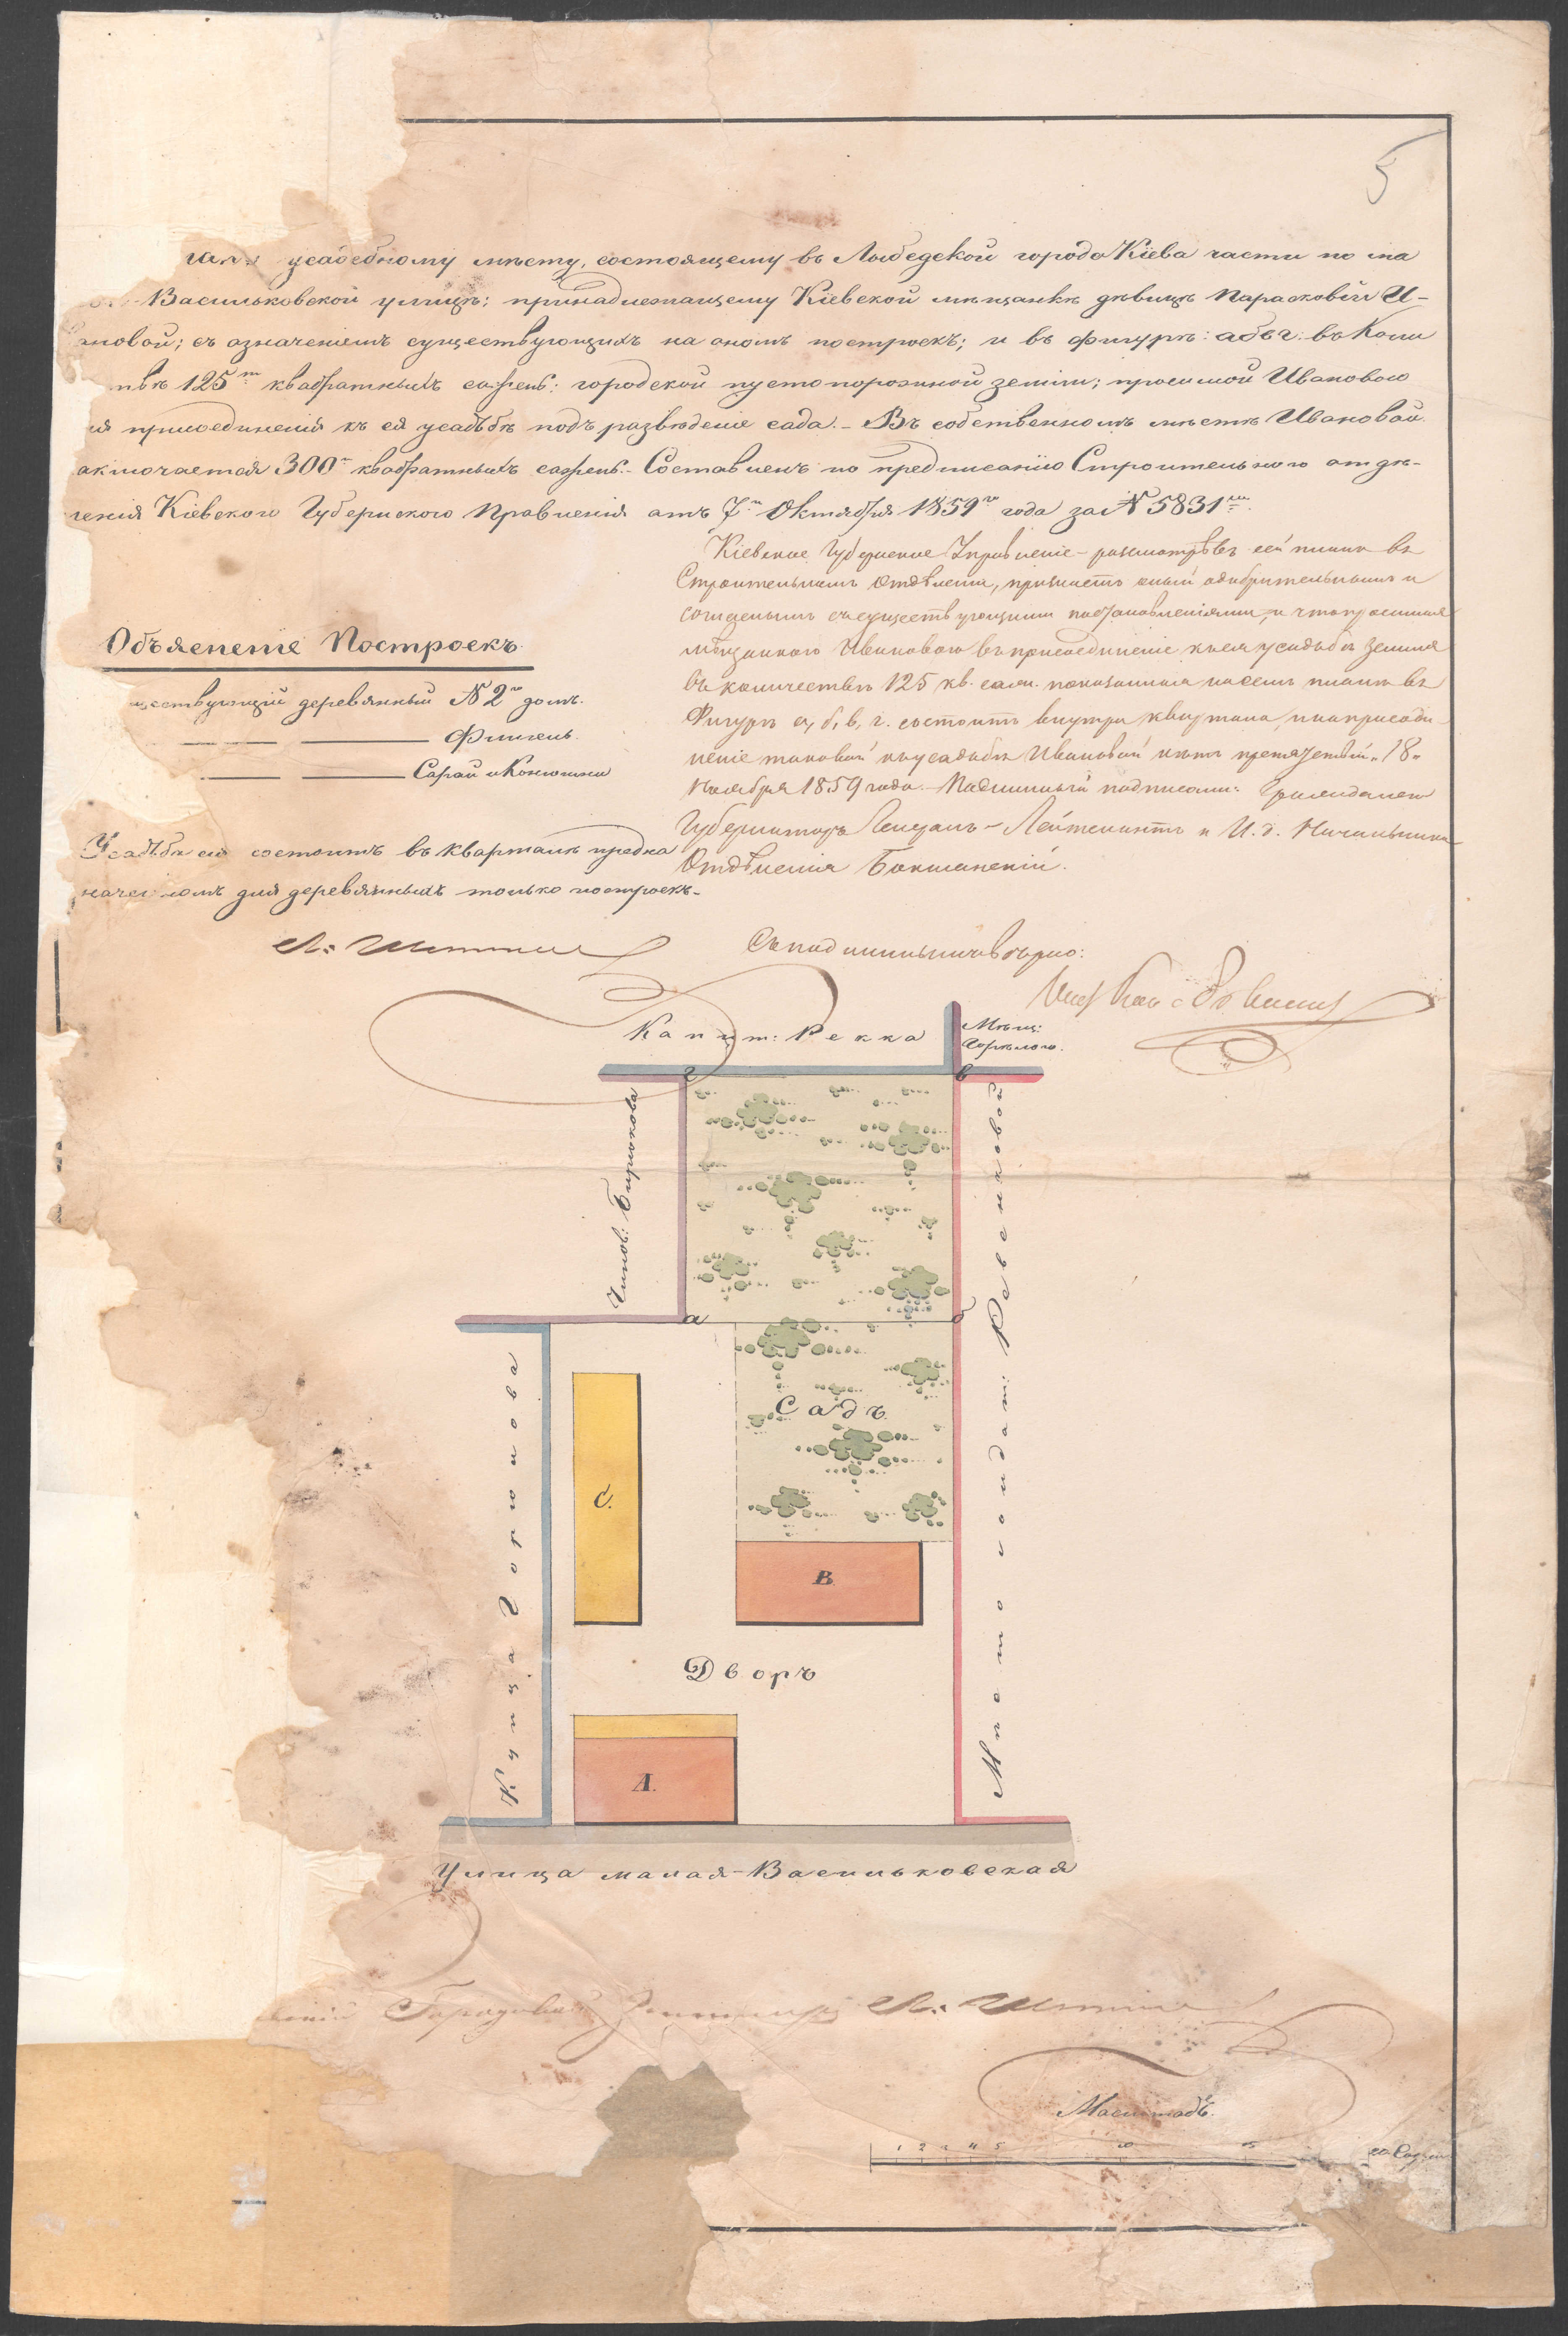 5
усадебному мѣсту, состоящему въ Лыбедской города Кіева части по ма
Васильковской улицѣ; принадлежащему Кіевской мѣщанкѣ дѣвицѣ Парасковіи И-
ановой; съ означеніемъ существующихъ на ономъ построекъ; и въ фигурѣ: абвг: въ коли
твѣ 125ти квадратныхъ сажень: городской пустопорожней земли; просимой Ивановою
ля присоединенія къ ея усадьбѣ подъ разведеніе сада. – Въ собственномъ мѣстѣ Ивановой
аключается 300тъ квадратныхъ сажень. – Составленъ по предписанію Строительнаго отдѣ-
ленія Кіевскаго Губернскаго Правленія отъ 7го Октября 1859го года за № 5831мъ.
Кіевское Губернское Управленіе – разсмотрѣвъ сей планъ въ
Строительномъ Отдѣленіи, признаетъ оный одобрительнымъ и
согласнымъ съ существующими постановленіями, и что просимая
мѣщанкою Ивановою въ присоединеніе къ ея усадьбѣ земля
въ количествѣ 125 кв. саж. показанная на семъ планѣ въ
Фигурѣ а, б, в, г. состоитъ внутри квартала, и на присоди-
неніе таковой къ усадьбѣ Ивановой нѣтъ препятствій „18„
Ноября 1859 года. – Подлинный подписали: Гражданскій
Губернаторъ Генералъ – Лейтенантъ и И. д. Начальника
Отдѣленія
Объясненіе Построекъ.
ществующій деревянный № 2го домъ.
— — Флигель.
— — Сарай и Конюшни
Усадьба сія состоитъ въ кварталѣ предна
наченномъ для деревянныхъ только построекъ. –
Съ подлиннымъ вѣрно:
Капит: Рекка
Мѣщ:
Горѣлого.
г
в
Чинов: Бирюкова
а
б
Садъ.
С.
В.
Дворъ
А.
Купца Горюнова
Улица малая – Васильковская
Городовой
Масштабъ.
1 2 3 4 5 10 15 20 Сажен